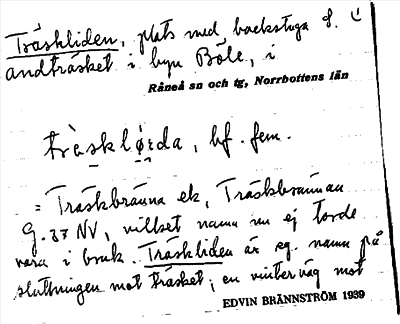 Träskliden, plats med backstuga f. i
andträsket i byn Böle, i
Råneå sn och tg, Norrbottens län
bf. fem.
= Träskbränna ek, Träskbrännan
G. 37 NV, vilket namn nu ej torde
vara i bruk. Träskliden är eg. namn på
sluttningen mot träsket; en vinterväg mot
EDVIN BRÄNNSTRÖM 1939